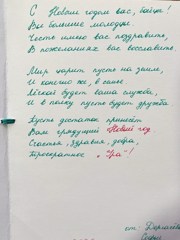 С Новым годом вас, бойцы!
Вы большие молодцы.
Честь имею вас поздравить,
В пожеланиях вас восславить.
Мир царит пусть на земле,
И конечно же, в семье
Лёгкой будет ваша служба,
И в полку пусть будет дружба
Пусть достаток принесёт
Вам грядущий Новый год
Счастья, здравия, добра,
Троекратное „Ура"!
от